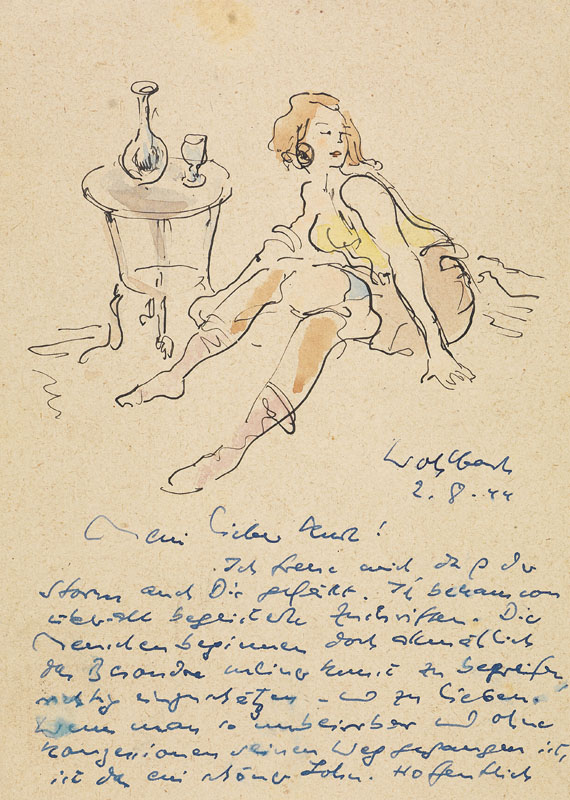 Wolfbach
2. 8. 44
Mein lieber Kurt!
Ich freue mich daß der
Storm auch Dir gefällt. Ich bekam von
überall begeisterte Zuschriften. Die
Menschen beginnen doch allmählich
das Besondre meiner Kunst zu begreifen,
richtig einzuschätzen - und zu lieben.
Wenn man so unbeirrbar und ohne
Konzessionen seinen Weg gegangen ist,
ist das ein schöner Lohn. Hoffentlich